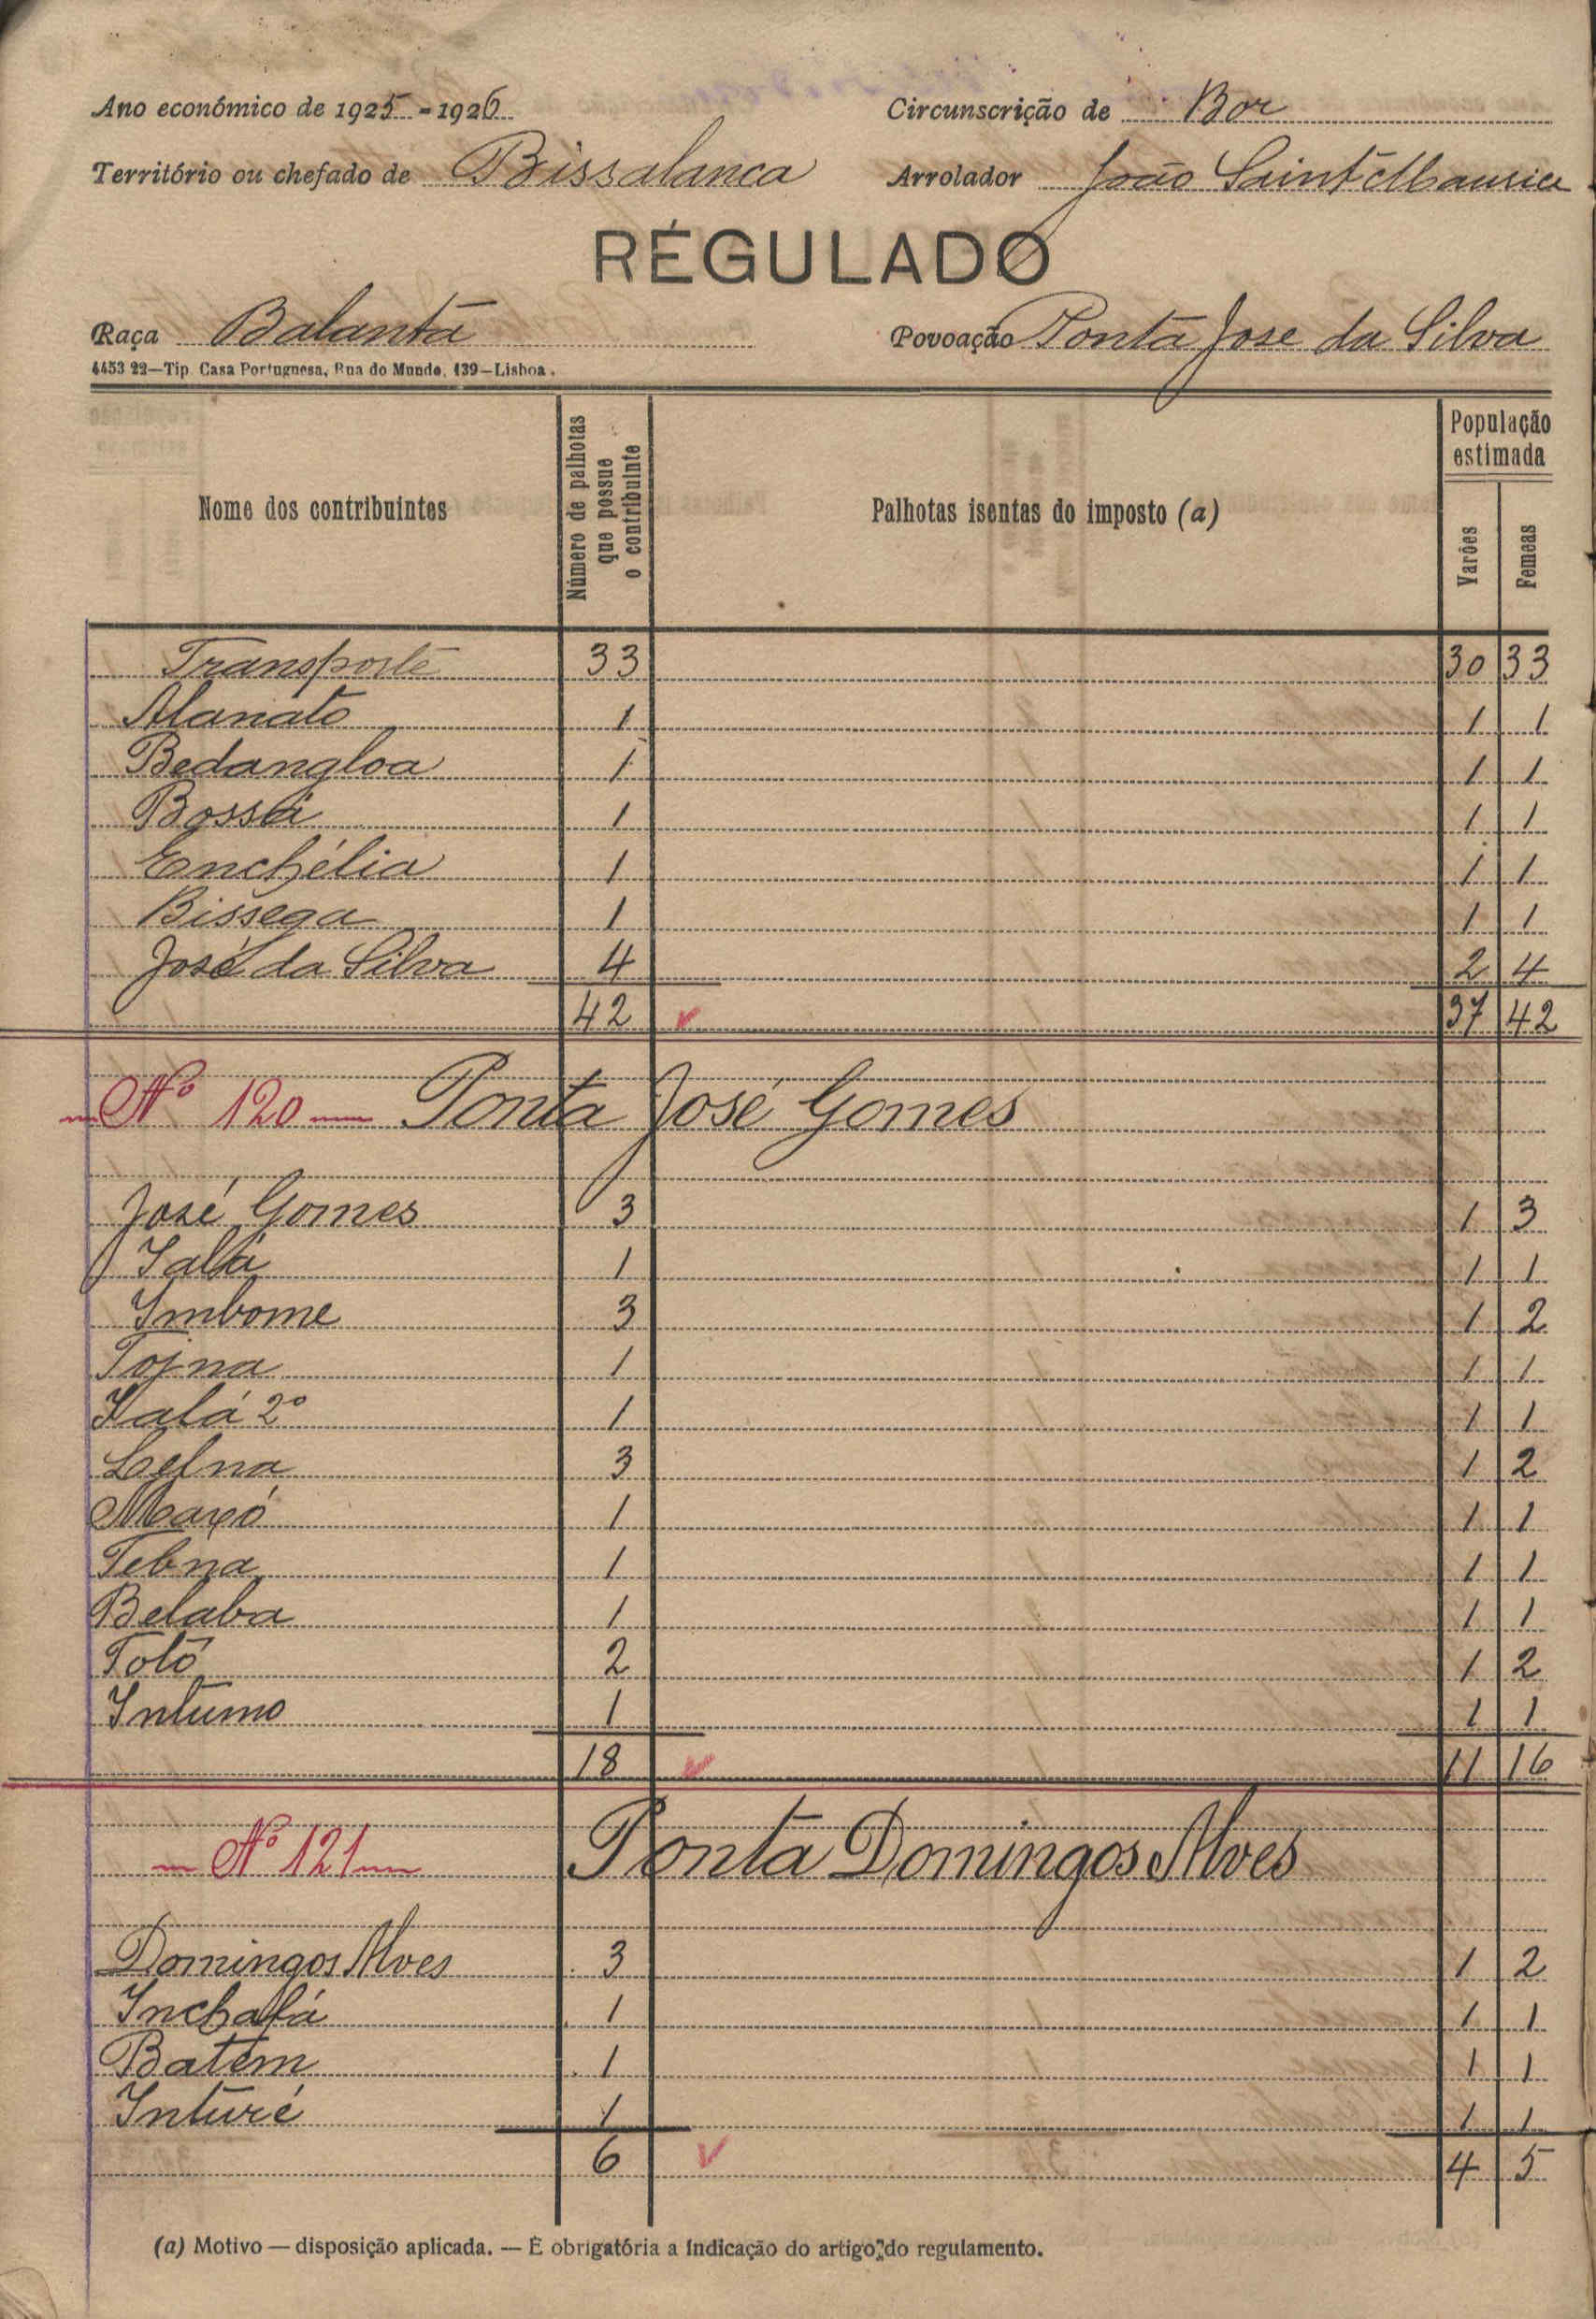 Ano económico de 1925-1926 Circunscrição de Bor
Território ou chefado de Bissalanca Arrolador João Saint Maurice
RÉGULADO
Raça Balanta Povoação Ponta Jose da Silva
4453 22—Tip. Casa Portuguesa, Rua do Mundo, 139—Lisboa.
Nome dos contribuintes Número de palhotas que possue o contribuinte Palhotas isentas do imposto (a) População estimada Varões Femeas
Transporte 33 30 33
Alanato 1 1 1
Bedangloa 1 1 1
Bossá 1 1 1
Enchélia 1 1 1
Bissega 1 1 1
José da Silva 4 2 4
42 37 42
Nº 120 Ponta José Gomes
José Gomes 3 1 3
Ialá 1 1 1
Imbome 3 1 2
Tojna 1 1 1
Ialá 2º 1 1 1
Lefna 3 1 2
Mayó 1 1 1
Tebna 1 1 1
Belaba 1 1 1
Totó 2 1 2
Intumo 1 1 1
18 11 16
Nº 121 Ponta Domingos Alves
Domingos Alves 3 1 2
Inchalá 1 1 1
Batem 1 1 1
Inturé 1 1 1
6 4 5
(a) Motivo — disposição aplicada. — É obrigatória a indicação do artigo do regulamento.